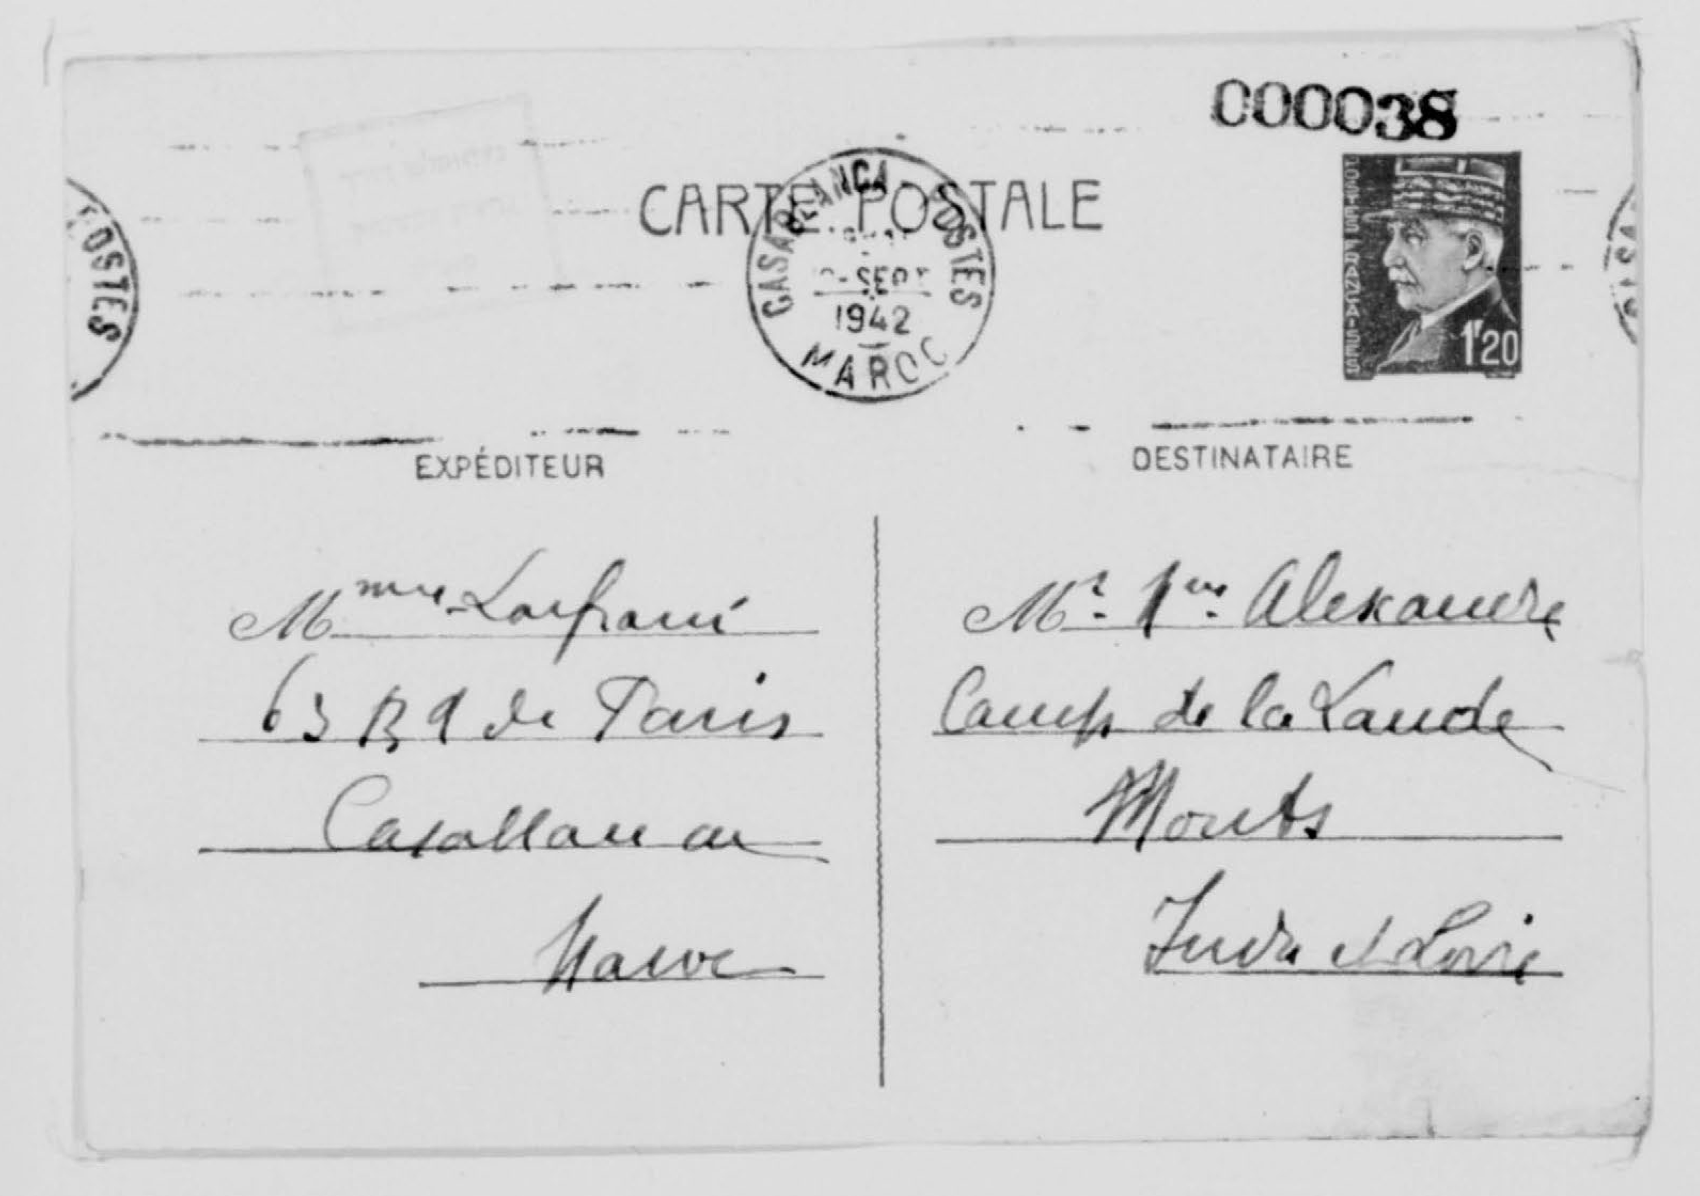 000038
CARTE POSTALE
CASABLANCA - POSTES
SEPT
1942
MAROC
POSTES
POSTES FRANÇAISES
1F20
EXPÉDITEUR
DESTINATAIRE
Mme Lanfrani
63 Bd de Paris
Casablanca
Maroc
Mr. Alexandre
Camp de la Lande
Monts
Indre et Loire